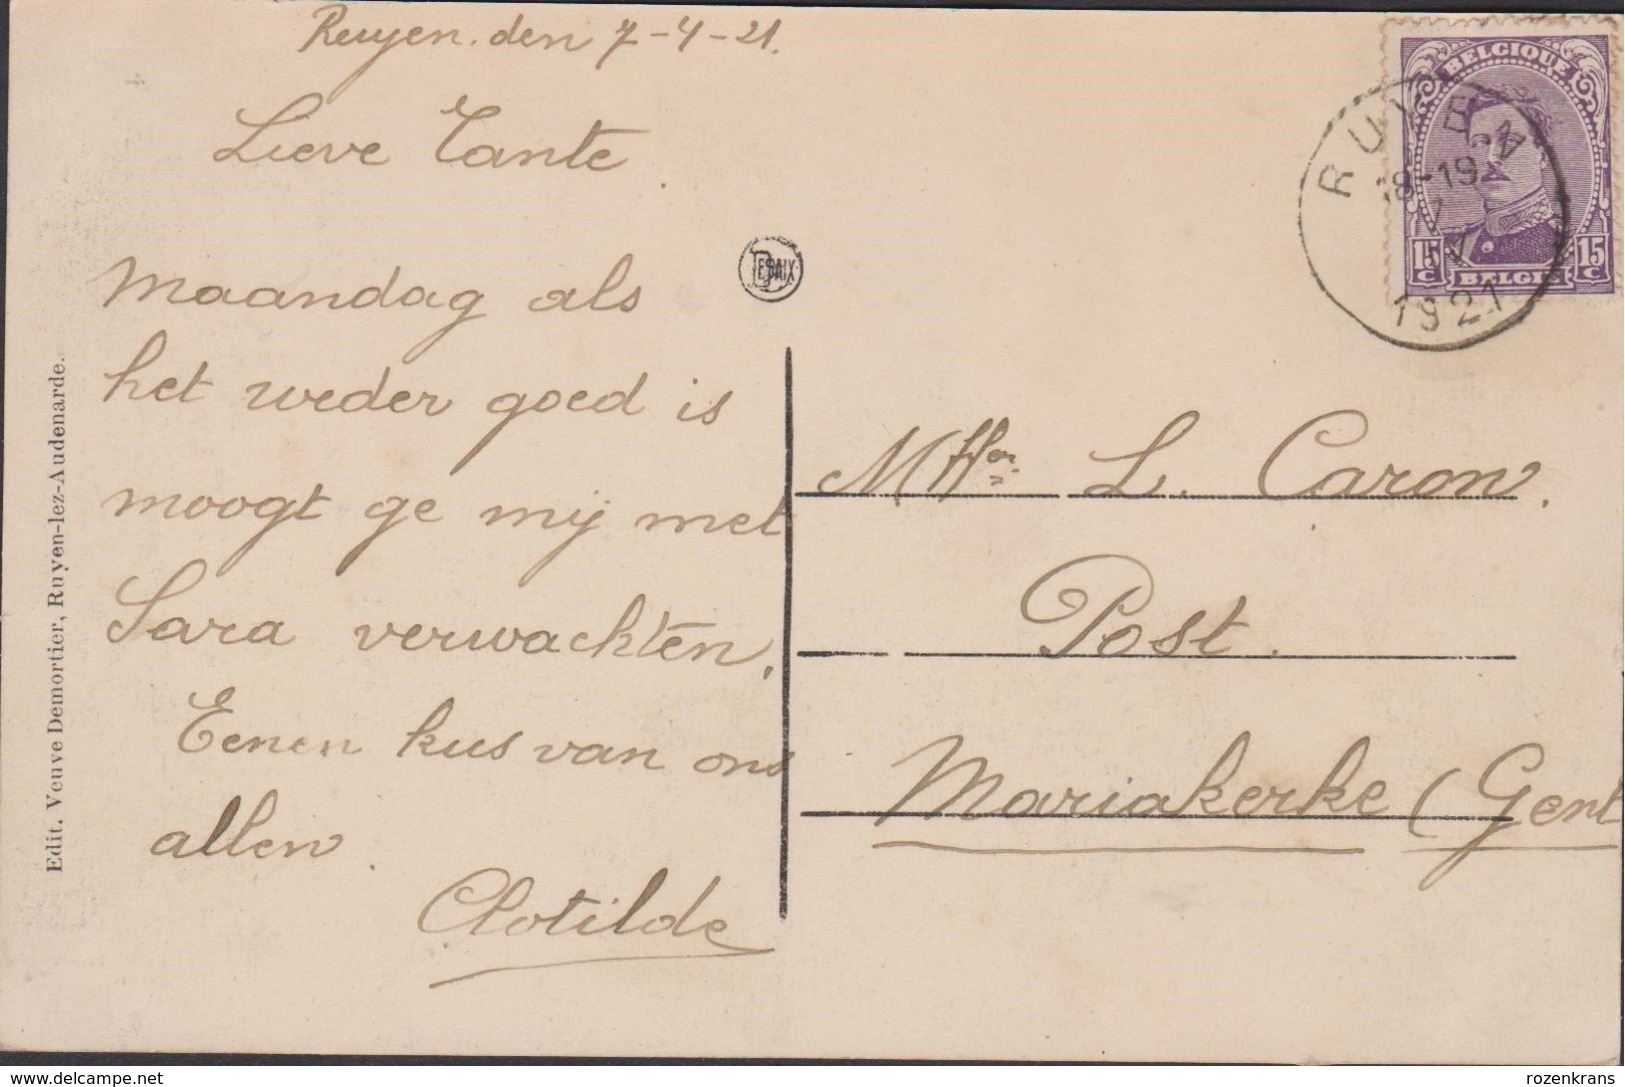 Ruyen. den 7-4-21.
Lieve Tante
Maandag als
het weder goed is
moogt ge mij met
Sara verwachten.
Eenen kus van ons
allen.
Clotilde
Edit. Veuve Demortier, Ruyen-lez-Audenarde.
DESAIX
BELGIQUE
15 C
15 C
BELGIË
RUYEN
18-19
7
IV
1921
L. Caron.
Post.
Mariakerke (Gent
delcampe.net
rozenkrans